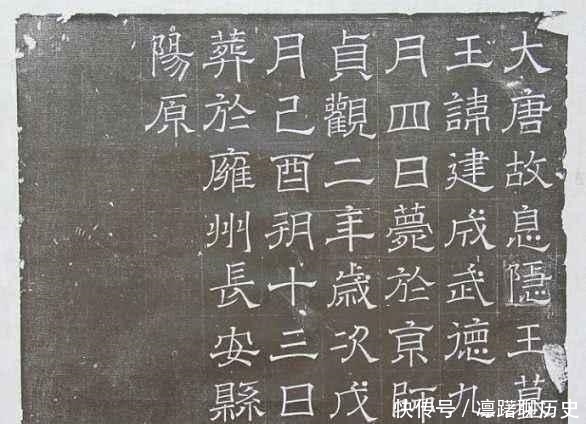 大唐故息隱王墓
王諱建成武德九
月四日薨於京師
貞觀二年歲次戊
月己酉朔十三日
葬於雍州長安縣
陽原
快传号/凛躇聊历史